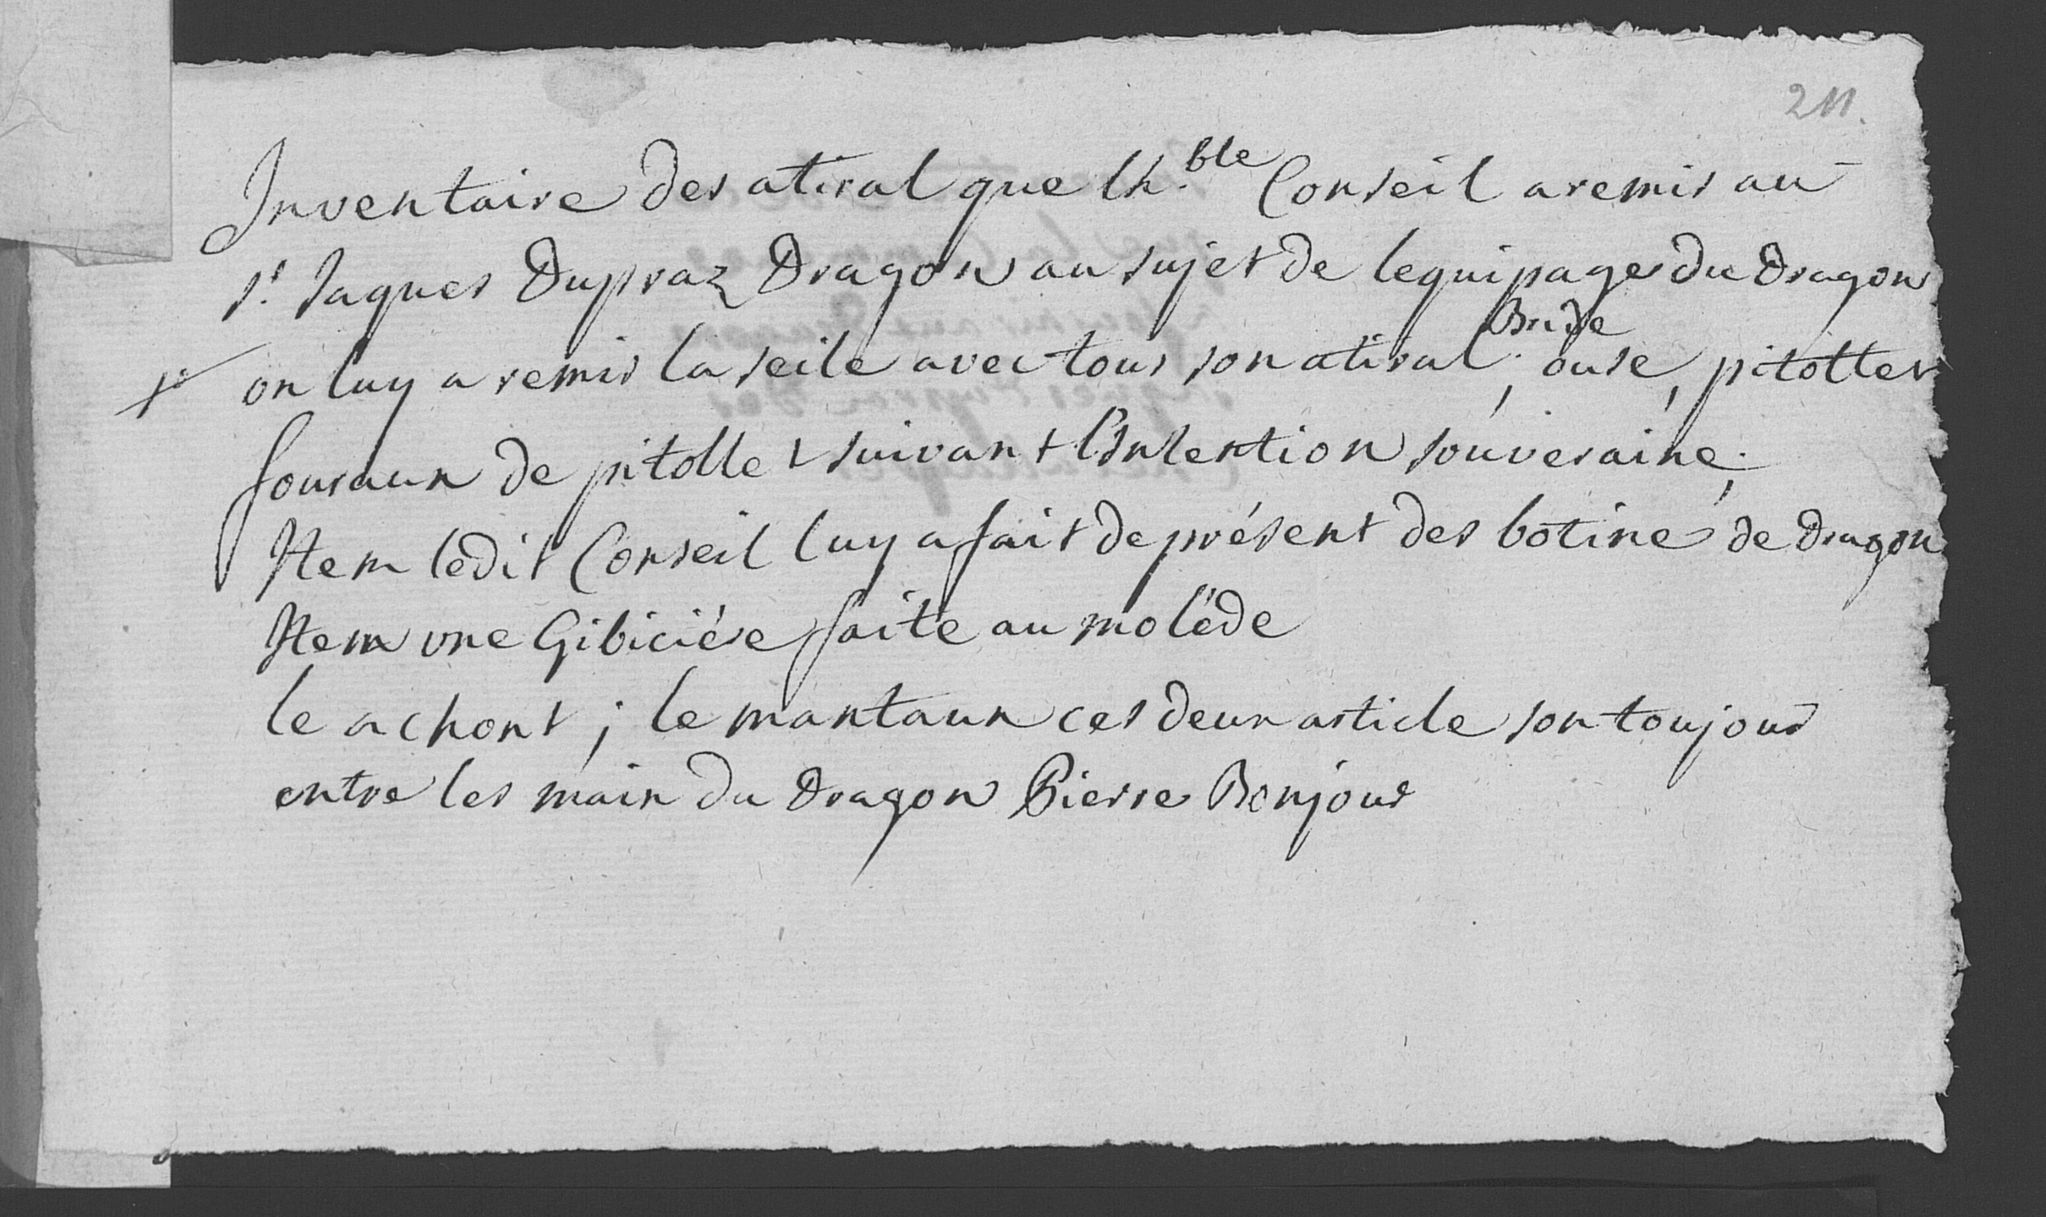 211.
Inventaire des atiral que lh.ble Conseil a remis au
sr. Jaques Dupraz Dragon au sujet de lequipage du Dragon
on luy a remis la seile avec tous son atiral, Bride, ouse, pitollet
fouraux de pitollet suivant l'Intention souveraine.
Item ledit Conseil luy a fait de présent des botine de Dragon
Item une Gibiciére faite au moléde
le achont ; le mantaux ces deux article son toujour
entre les main du Dragon Pierre Bonjour